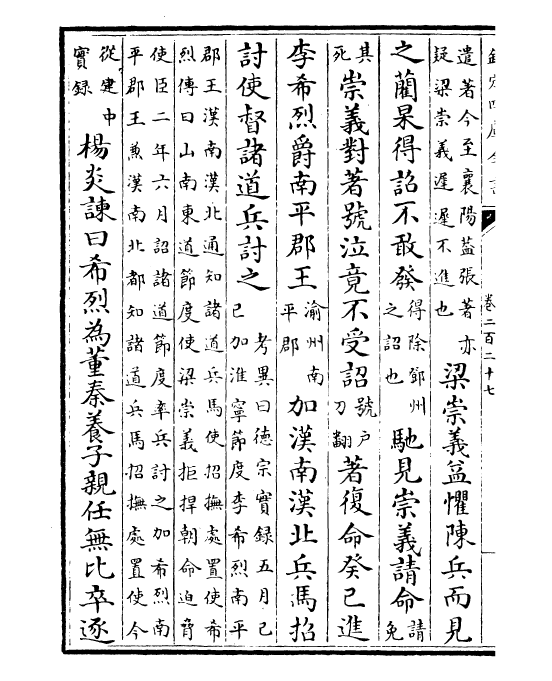 欽定四庫全書
卷二百二十七
遣著今至襄陽葢張著亦
疑梁崇義遲遲不進也
梁崇義益懼陳兵而見
之藺杲得詔不敢發
得除鄧州
之詔也
馳見崇義請命
請
免
其
死
崇義對著號泣竟不受詔
號户
刀翻
著復命癸已進
李希烈爵南平郡王
渝州南
平郡
加漢南漢北兵馬招
討使督諸道兵討之
考異曰德宗實録五月己
已加淮寧節度李希烈南平
郡王漢南漢北通知諸道兵馬使招撫處置使希
烈傳曰山南東道節度使梁崇義拒捍朝命迫脅
使臣二年六月詔諸道節度率兵討之加希烈南
平郡王兼漢南北都知諸道兵馬招撫處置使今
從建中
實録
楊炎諫曰希烈為董秦養子親任無比卒逐